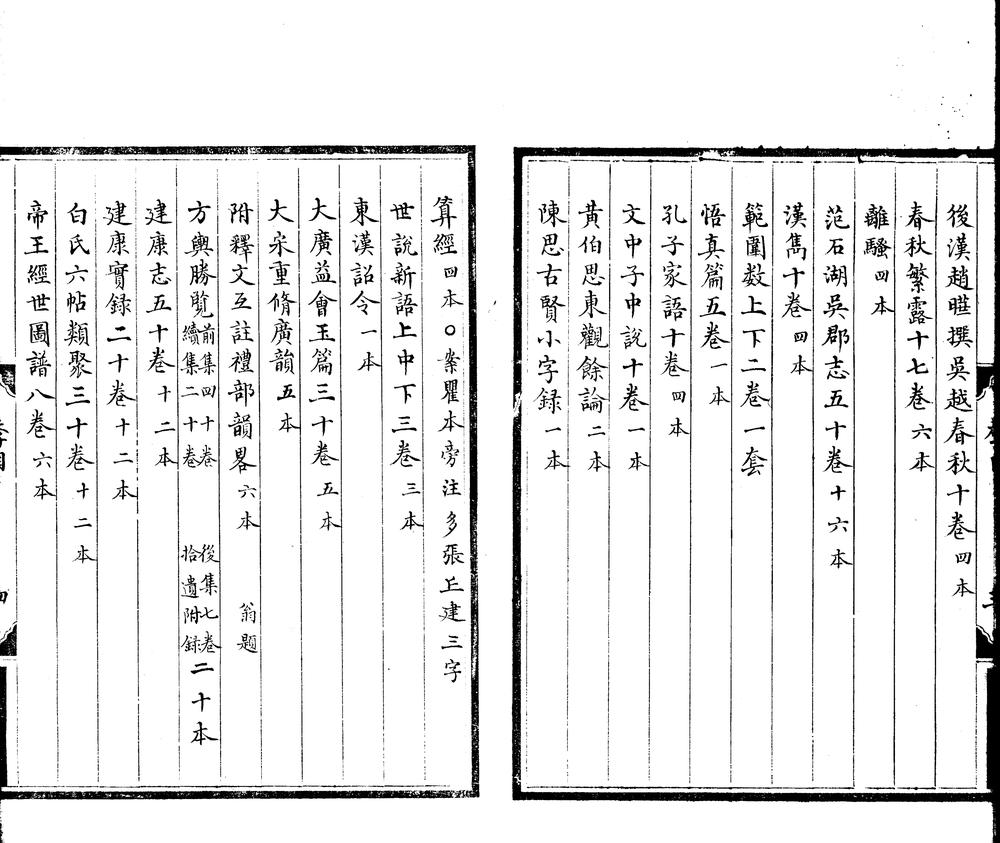 後漢趙曄撰吳越春秋十卷四本
春秋繁露十七卷六本
離騷四本
范石湖吳郡志五十卷十六本
漢雋十卷四本
範圍數上下二卷一套
悟真篇五卷一本
孔子家語十卷四本
文中子中說十卷一本
黃伯思東觀餘論二本
陳思古賢小字録一本
算經四本○案瞿本旁注多張丘建三字
世說新語上中下三卷三本
東漢詔令一本
大廣益會玉篇三十卷五本
大宋重脩廣韻五本
附釋文互註禮部韻畧六本 翁題
方輿勝覧前集四十卷續集二十卷 後集七卷拾遺附録二十本
建康志五十卷十二本
建康實録二十卷十二本
白氏六帖類聚三十卷十二本
帝王經世圖譜八卷六本